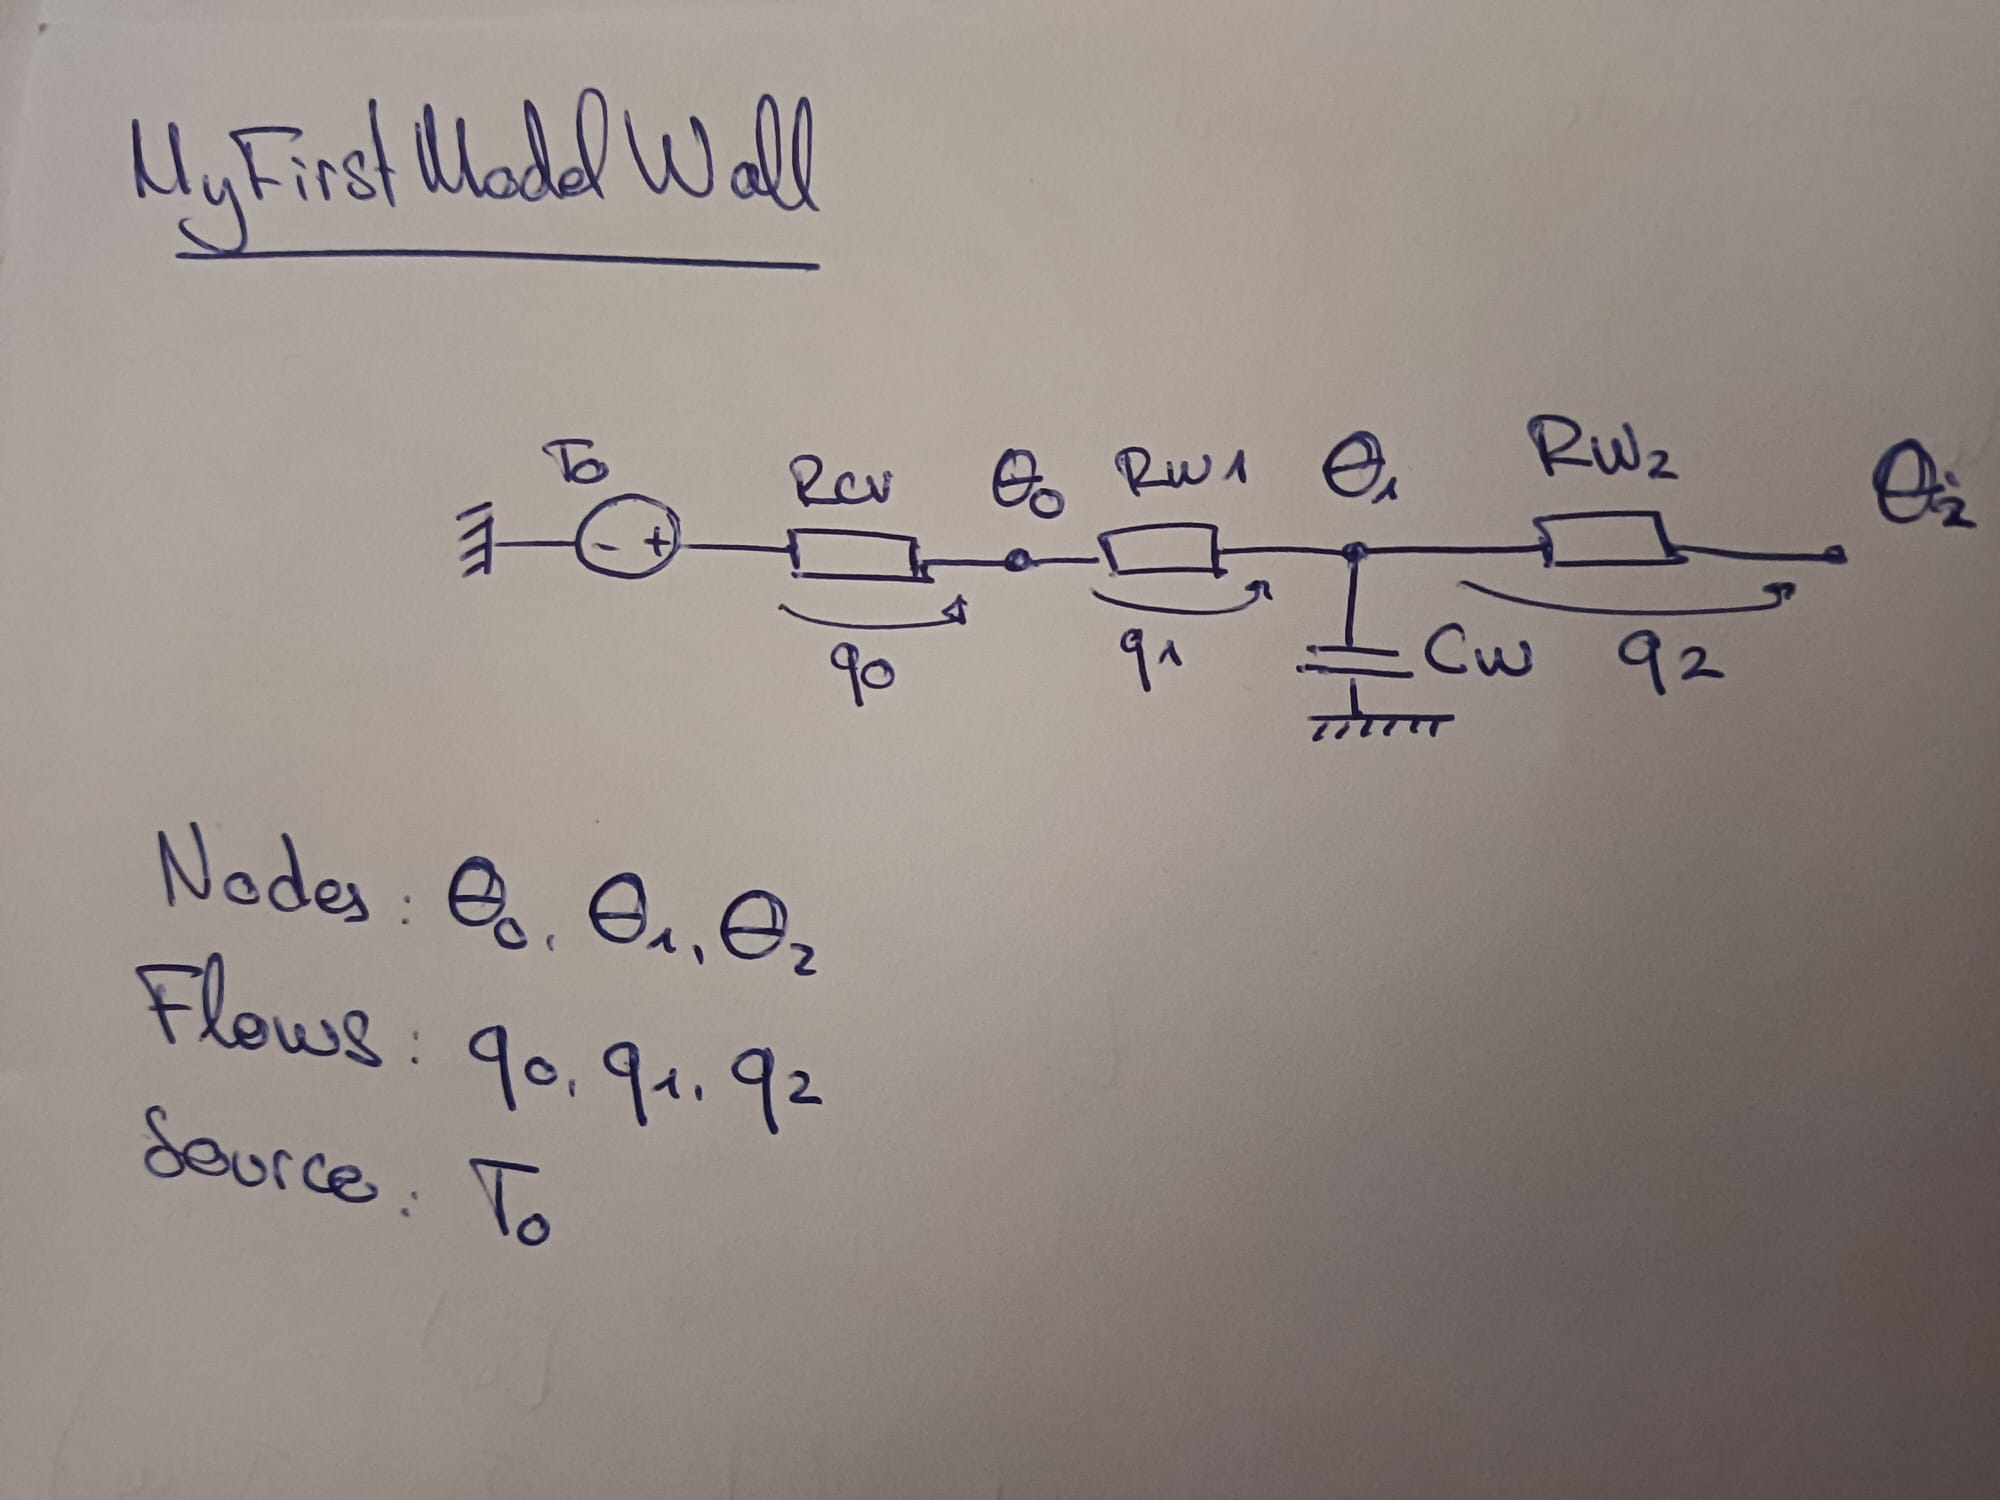 MyFirst Model Wall
To Rcv θ0 RW1 θ1 RW2 θ2
- +
q0 q1 Cw q2
Nodes: θ0, θ1, θ2
Flows: q0, q1, q2
Source: To